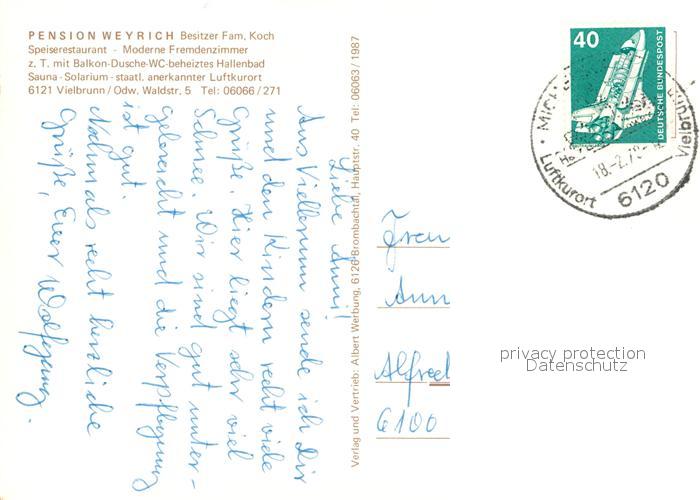 PENSION WEYRICH Besitzer Fam. Koch
Speiserestaurant - Moderne Fremdenzimmer
z. T. mit Balkon-Dusche-WC-beheiztes Hallenbad
Sauna-Solarium-staatl. anerkannter Luftkurort
6121 Vielbrunn/Odw. Waldstr. 5 Tel: 06066/271
Liebe Anni!
Aus Vielbrunn sende ich Dir
und den Kindern recht viele
Grüße. Hier liegt sehr viel
Schnee. Wir sind gut unter-
gebracht und die Verpflegung
ist gut.
Nochmals recht herzliche
Grüße, Euer Wolfgang.
Verlag und Vertrieb: Albert Werbung, 6126 Brombachtal, Hauptstr. 40 Tel: 06063/1987
40
DEUTSCHE BUNDESPOST
18.-2.79
6120
Luftkurort
Vielbrunn
Frau
Ann
Alfred
6100
privacy protection
Datenschutz